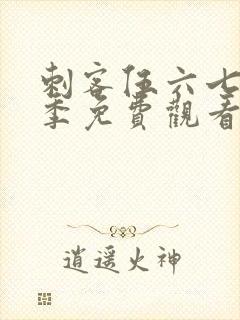 刺客伍六七
季免費觀看
逍遥火神